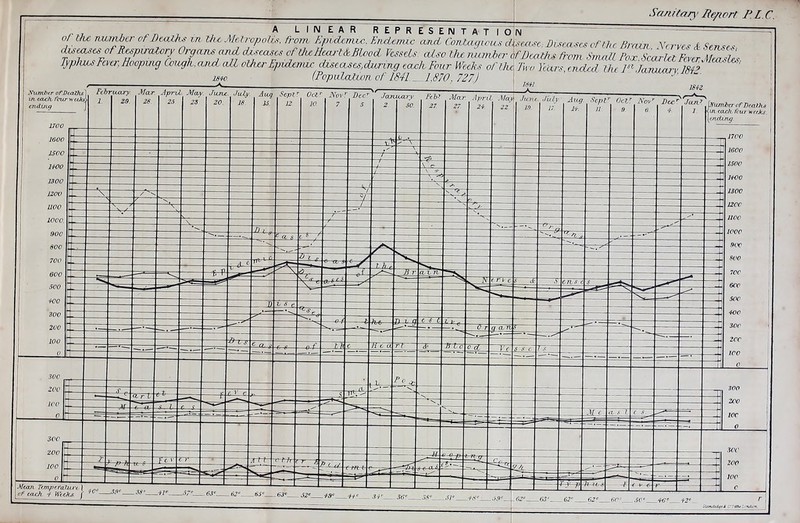 Sanitary Report P.L.C.
A LINEAR REPRESENTATION
of the number of Deaths in the Metropolis, from Epidemic, Endemic and Contagious disease, Diseases of the Brain, Nerves & Senses,
diseases of Respiratory Organs and diseases of the Heart & Blood Vessels: also the number of Deaths from Small Pox, Scarlet Fever, Measles,
Typhus Fever, Hooping Cough, and all other Epidemic diseases, during each Four Weeks of the Two Years, ended the 1st January, 1842.
(Population of 1841 __ 1,870,727)
1840 1841 1842
Number of Deaths in each four weeks ending
February Mar April May June July Aug Sept Oct Nov Dec January Feb Mar April May June July Aug Sept Oct Nov Dec Jan
Number of Deaths in each four weeks ending
1700
1600
1500
1400
1300
1200
1100
1000
900
800
700
600
500
400
300
200
100
0
Diseases of the Respiratory Organs
Epidemic Diseases
Diseases of the Brain Nerves & Senses
Diseases of the Digestive Organs
Diseases of the Heart & Blood Vessels
300
200
100
0
Scarlet Fever
Small Pox
Measles
Measles
300
200
100
0
Typhus Fever
All other Epidemic Diseases
Hooping Cough
Typhus Fever
Mean Temperature of each 4 Weeks